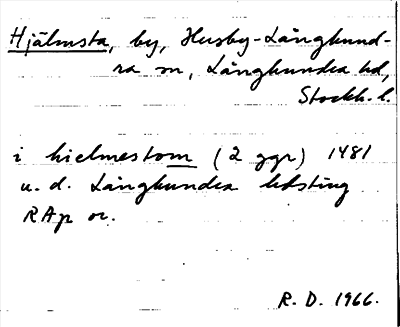 Hjälmsta, by, Husby-Långhund-
ra sn, Långhundra hd,
Stockh. l.
i hielmestom (2 ggr) 1481
u. d. Långhundra hdsting
RAp or.
R. D. 1966.